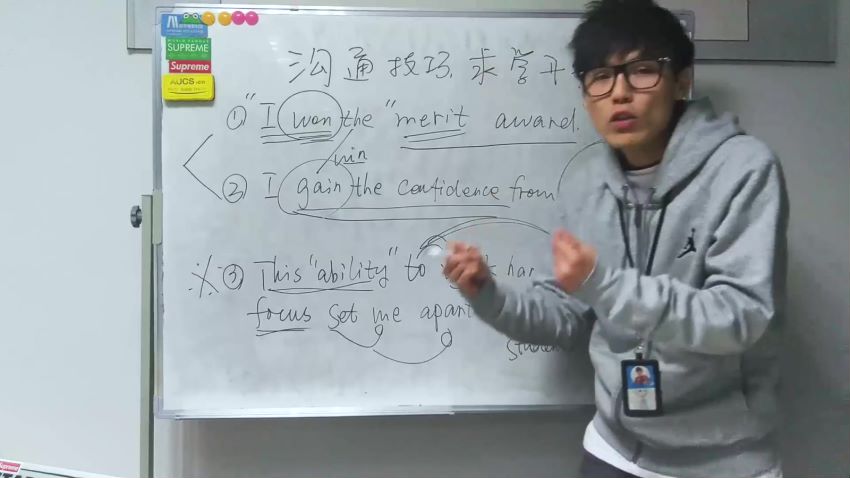 SUPREME
Supreme
AUCS.cn
沟通技巧.求学开
① "I won the "merit award.
win
② I gain the confidence from
※③ This "ability" to work har
focus set me apart
studen
Supreme